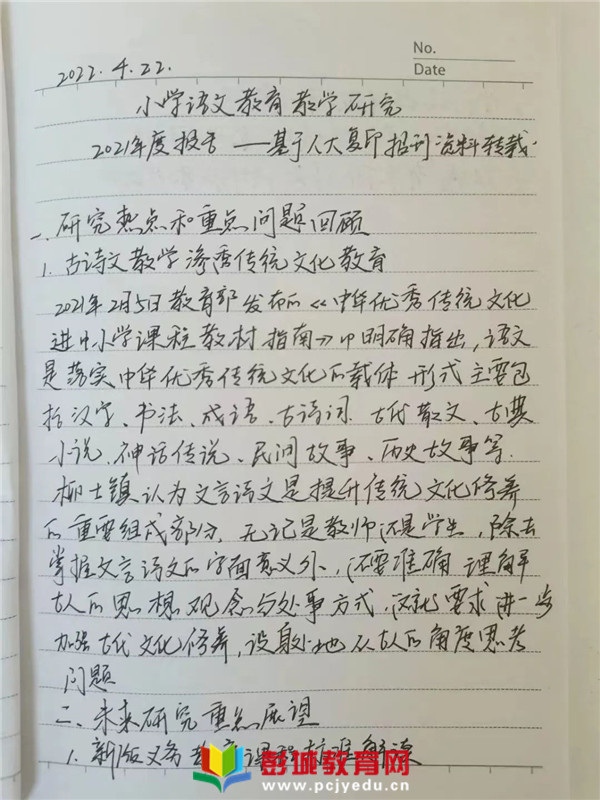 No.
2022.4.22.
Date
小学语文教育教学研究
2021年度报告——基于人大复印报刊资料转载
一、研究热点和重点问题回顾
1.古诗文教学渗透传统文化教育
2021年2月5日教育部发布的《中华优秀传统文化
进中小学课程教材指南》中明确指出,语文
是落实中华优秀传统文化的载体 形式主要包
括汉字、书法、成语、古诗词、古代散文、古典
小说、神话传说、民间故事、历史故事等.
柳士镇认为文言语文是提升传统文化修养
的重要组成部分,无论是教师还是学生,除去
掌握文言语文的字面意义外,还要准确理解
古人的思想观念与处事方式,这就要求进一步
加强古代文化修养,设身处地从古人的角度思考
问题
二、未来研究重点展望
1.新版义务教育课程标准解读
彭城教育网
www.pcjyedu.cn